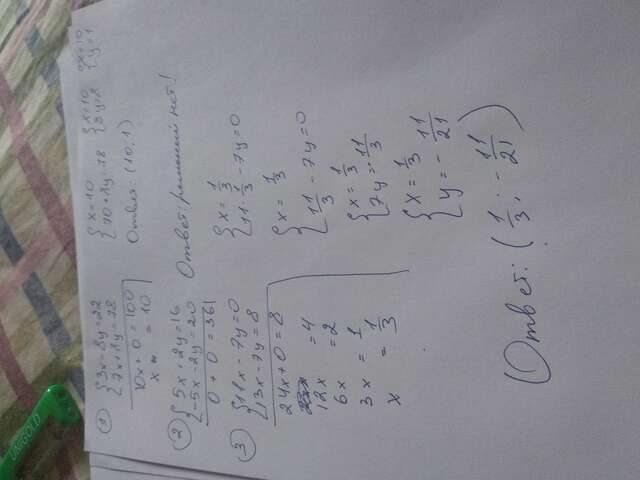 UNIGOLD
1 {3x - 8y = 22
{7x + 8y = 78
10x + 0 = 100
x = 10
{x = 10
{70 + 8y = 78
{x = 10
{8y = 8
{x = 10
{y = 1
Ответ: (10; 1)
2 {5x + 2y = 16
{-5x - 2y = 20
0 + 0 = 36
Ответ: решений нет!
3 {11x - 7y = 0
{13x - 7y = 8
24x + 0 = 8
12x = 4
6x = 2
3x = 1
x = 1/3
{x = 1/3
{11 · 1/3 - 7y = 0
{x = 1/3
{11/3 - 7y = 0
{x = 1/3
{7y = - 11/3
{x = 1/3
{y = - 11/21
Ответ: (1/3; - 11/21)